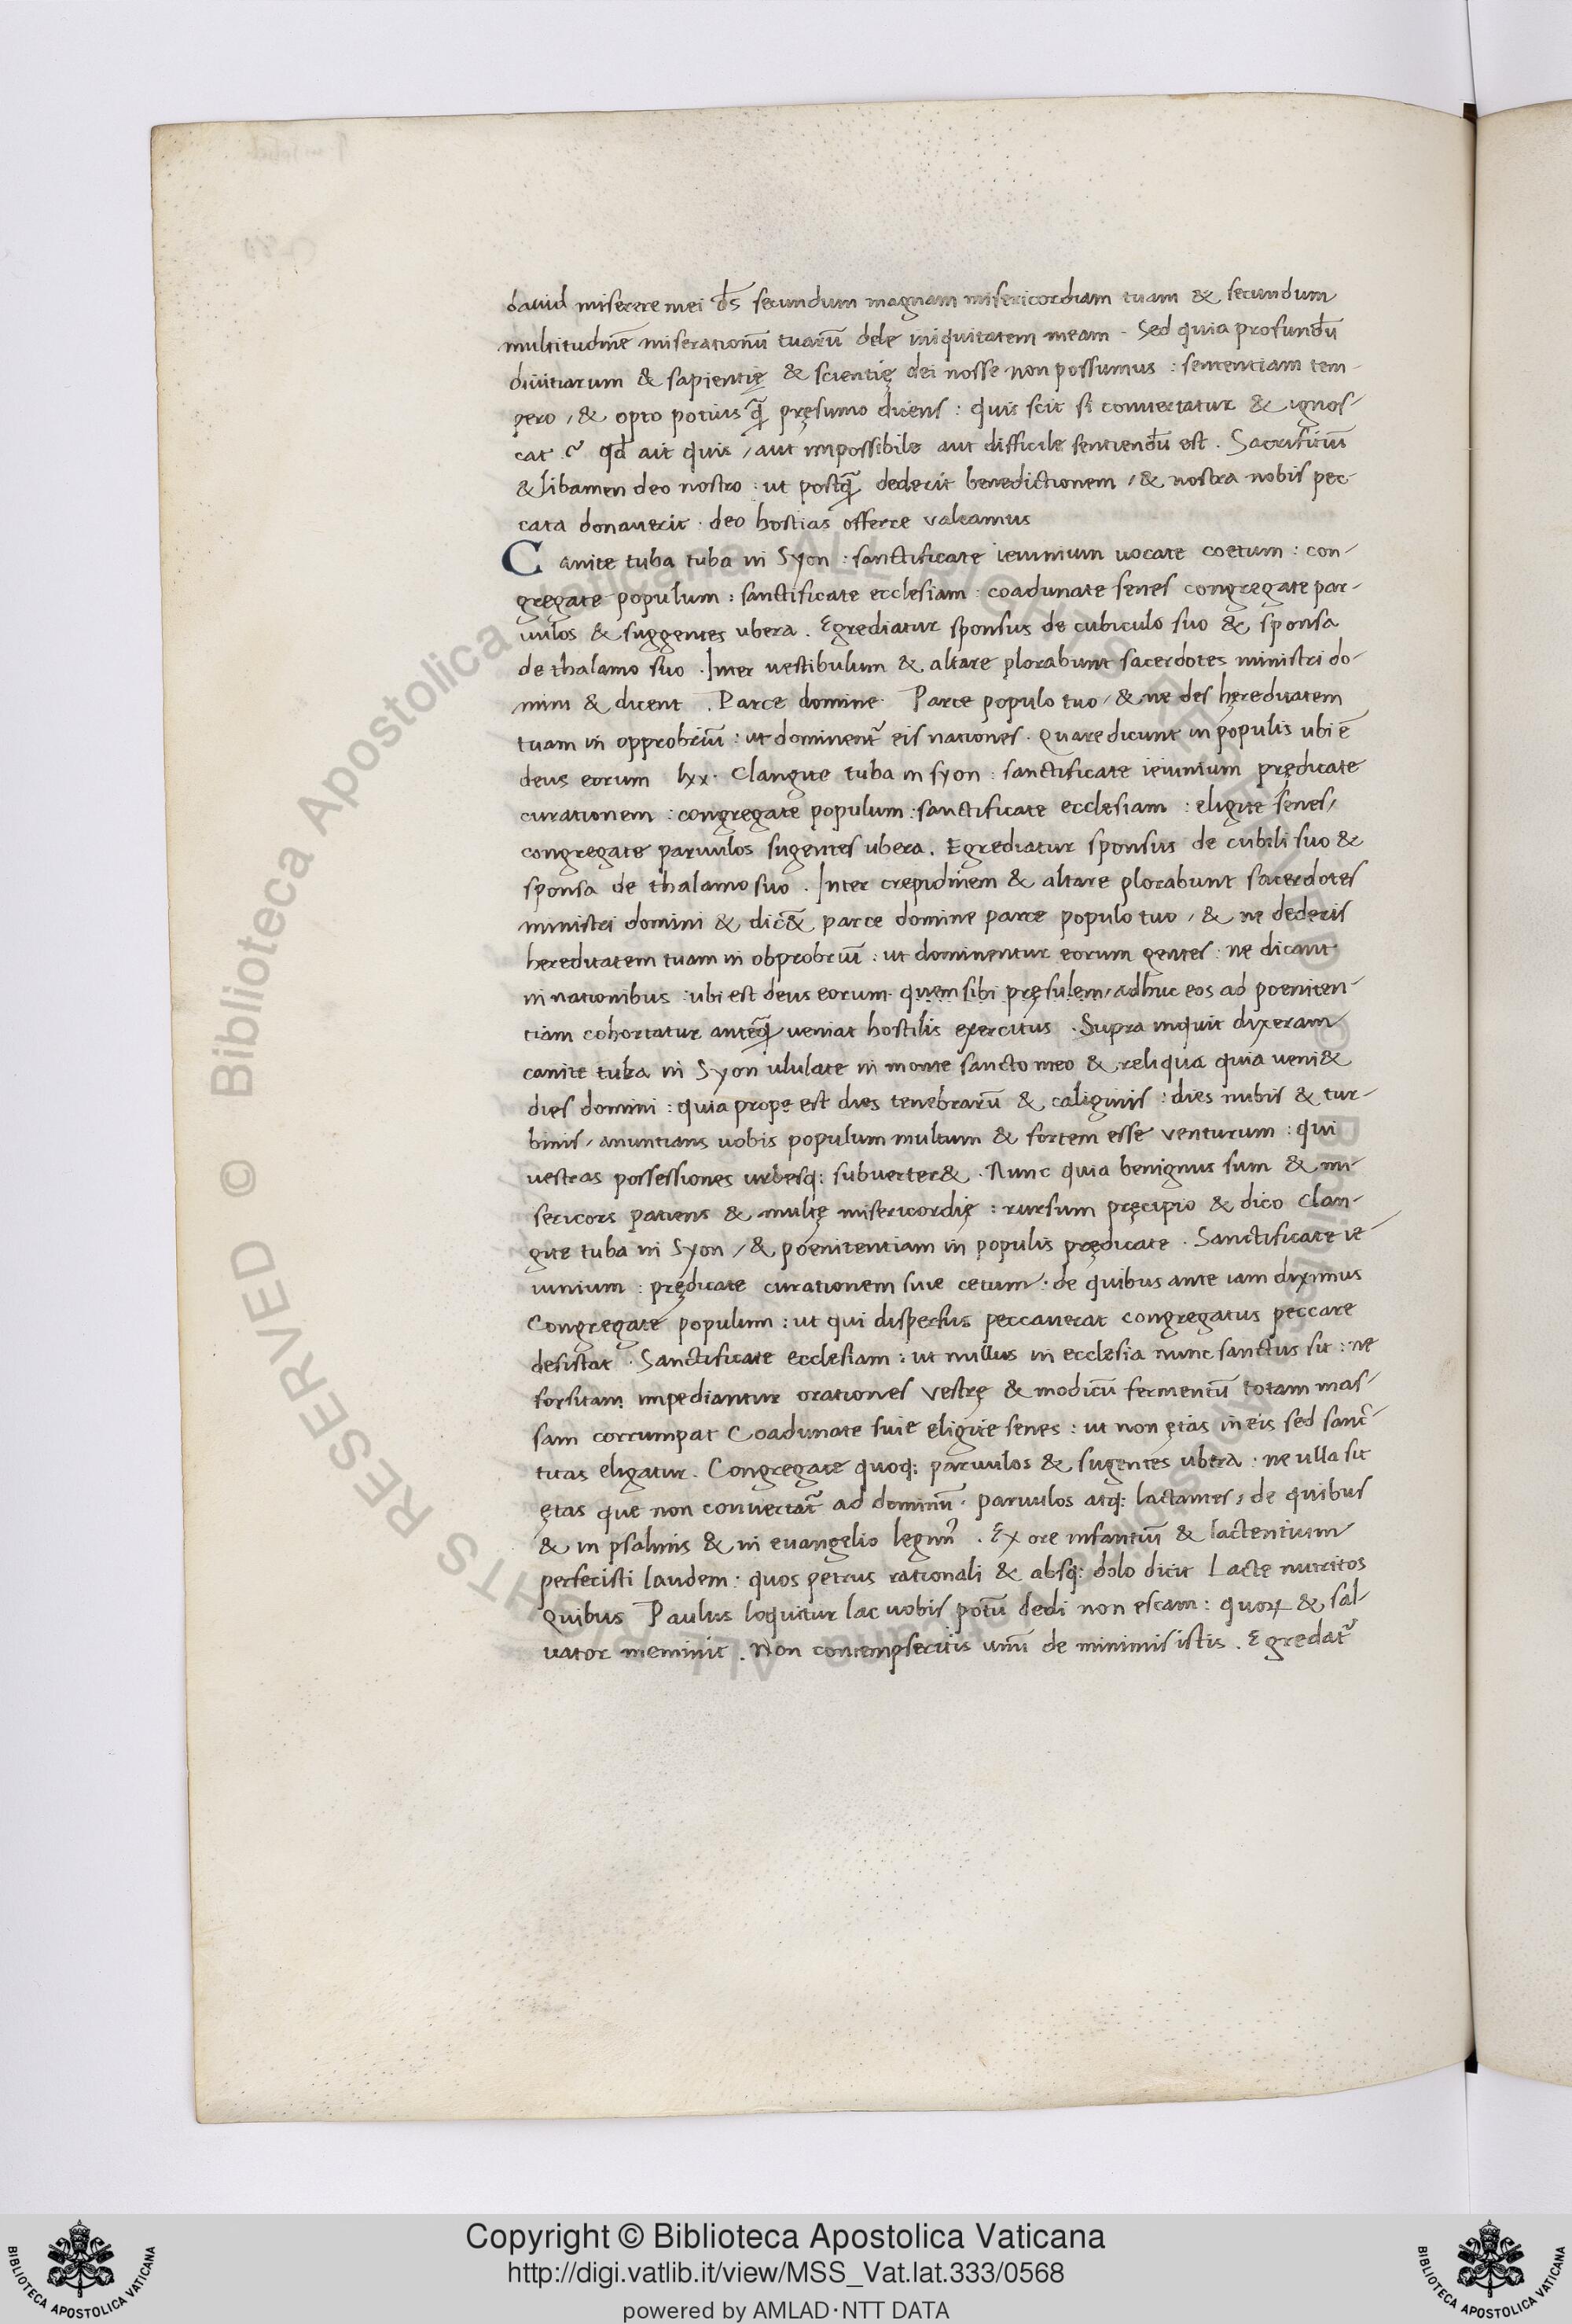 dauid miserere mei d̅s secundum magnam misericordiam tuam & secundum
multitudinē miserationū tuarū dele iniquitatem meam . Sed quia profundū
diuitiarum & sapientię & scientię dei nosse non possumus : sententiam tem-
pero , & opto potius q̄ pręsumo dicens : quis scit si conuertatur & ignos-
cat ? qd̅ ait quis , aut impossibile aut difficile sentiendū est . Sacrificiū
& libamen deo nostro : ut postq̄ dederit benedictionem , & nostra nobis pec-
cata donauerit . deo hostias offerre valeamus
Canite tuba tuba in Syon : sanctificate ieiunium uocate coetum : con-
gregate populum : sanctificate ecclesiam : coadunate senes congregate par-
uulos & suggentes ubera . Egrediatur sponsus de cubiculo suo & sponsa
de thalamo suo . Inter uestibulum & altare plorabunt sacerdotes ministri do-
mini & dicent . Parce domine . Parce populo tuo , & ne des hęreditatem
tuam in opprobriū : ut dominent᷑ eis nationes . Quare dicunt in populis ubi ē
deus eorum lxx . Clangite tuba in syon : sanctificate ieiunium prędicate
curationem : congregate populum : sanctificate ecclesiam : eligite senes ,
congregate paruulos sugentes ubera . Egrediatur sponsus de cubili suo &
sponsa de thalamo suo . Inter crepidinem & altare plorabunt sacerdotes
ministri domini & dic̄& parce domine parce populo tuo , & ne dederis
hereditatem tuam in obprobriū : ut dominentur eorum gentes : ne dicant
in nationibus : ubi est deus eorum . quem sibi pręsulem , adhuc eos ad poeniten-
tiam cohortatur anteq̄ ueniat hostilis exercitus . Supra inquit dixeram
canite tuba in Syon ululate in monte sancto meo & reliqua quia ueni&
dies domini : quia prope est dies tenebrarū & caliginis : dies nubis & tur-
binis , anuntians uobis populum multum & fortem esse venturum : qui
vestras possessiones urbesq: subuerter& . Nunc quia benignus sum & mi-
sericors patiens & multę misericordię : rursum pręcipio & dico Clan-
gite tuba in Syon , & poenitentiam in populis prędicate . Sanctificate ie-
iunium : prędicate curationem siue cetum . de quibus ante iam diximus
Congregate populum : ut qui dispersus peccauerat congregatus peccare
desistat . Sanctificate ecclesiam : ut nullus in ecclesia nunc sanctus sit : ne
forsitam impediantur orationes vestrę & modicū fermentū totam mas-
sam corrumpat Coadunate siue eligite senes : ut non ętas in eis sed sanc-
titas eligatur . Congregate quoq: paruulos & sugentes ubera : ne ulla sit
ętas que non conuertat᷑ ad dominū . paruulos atq: lactantes , de quibus
& in psalmis & in euangelio legim᷒ . Ex ore infantiū & lactentium
perfecisti laudem . quos petrus rationali & absq: dolo dicit Lacte nutritos
Quibus Paulus loquitur lac uobis potū dedi non escam : quoꝝ & sal-
uator meminit . Non contempseritis unū de minimis istis . Egredat᷑
Copyright © Biblioteca Apostolica Vaticana
http://digi.vatlib.it/view/MSS_Vat.lat.333/0568
powered by AMLAD·NTT DATA
BIBLIOTECA APOSTOLICA VATICANA
BIBLIOTECA APOSTOLICA VATICANA